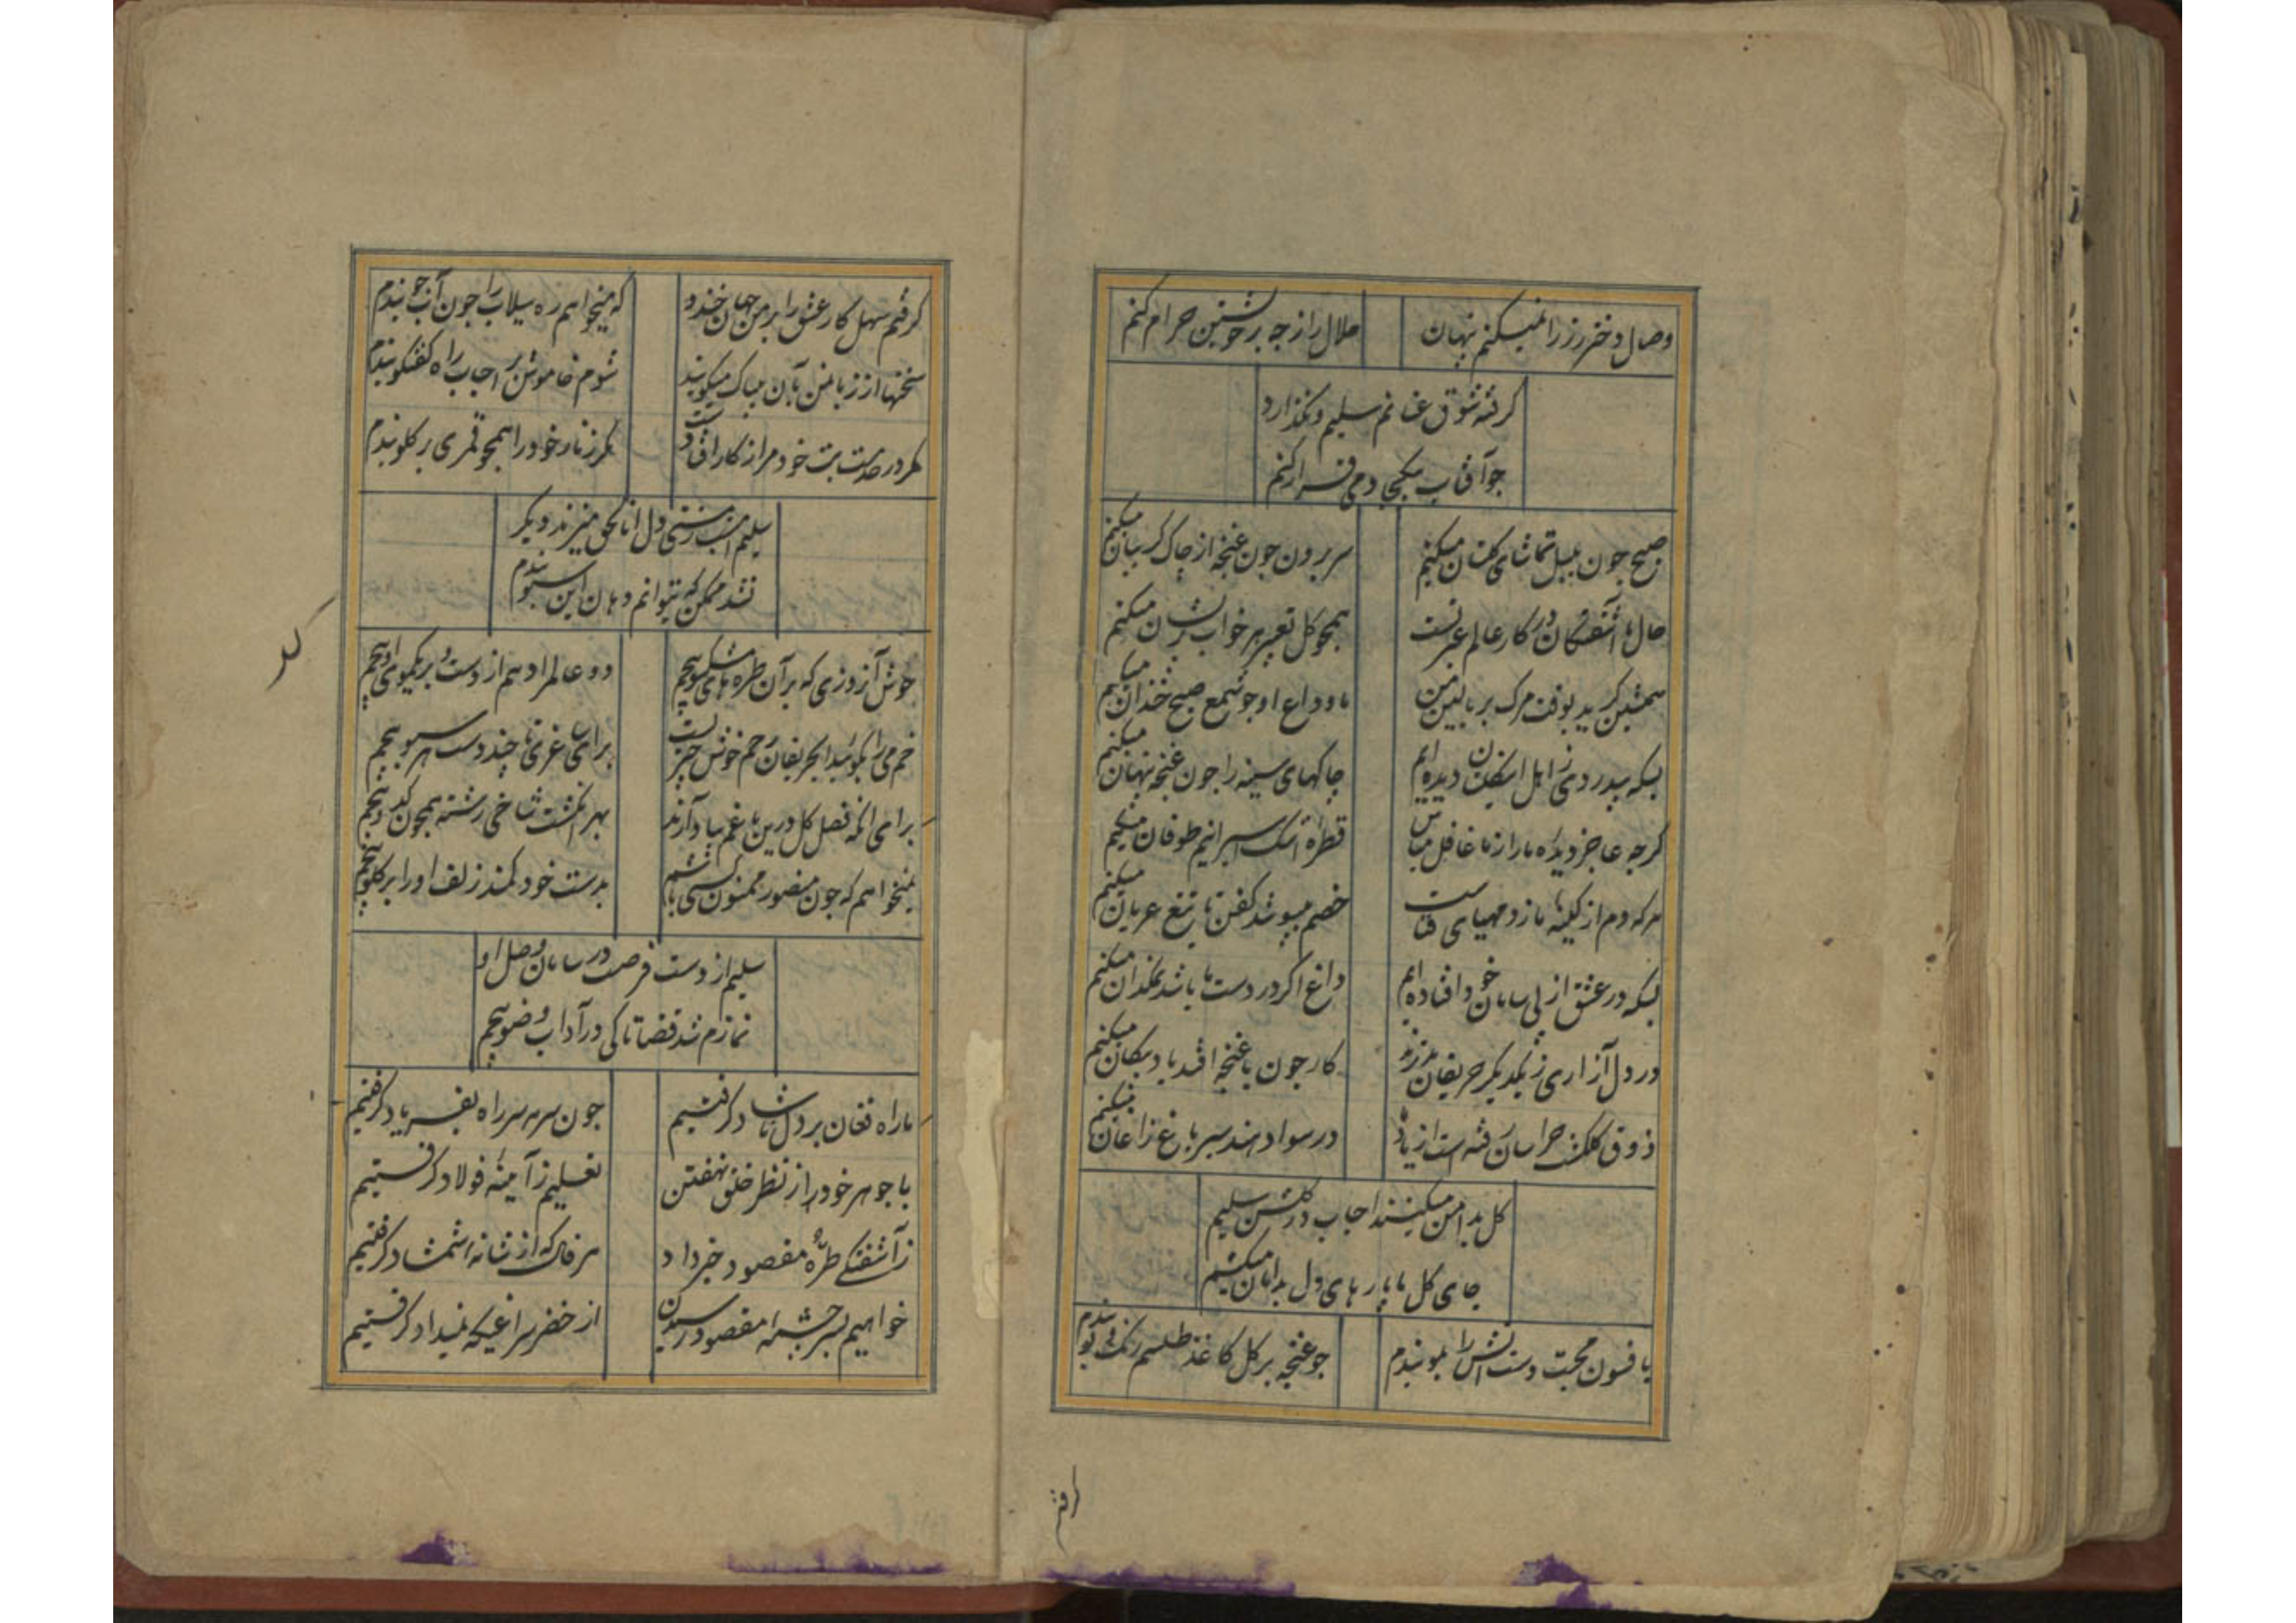 وصال دختر رز را نمیکنم پنهان
حلال را ز چه بر خویشتن حرام کنم
گرفته شوق عنانم سلیم و نگذارد
چو آفتاب بیکجا دمی قرار کنم
صبح چون بلبل تماشای گلستان میکنم
سر برون چون غنچه از چاک گریبان میکنم
حال ما آشفتگان در کار عالم عبرتست
همچو گل تعبیر هر خواب پریشان میکنم
همنشین گرید بوقت مرگ بر بالین من
ما وداع او چو شمع صبح خندان میکنیم
بسکه بیدردی ز اهل دیده ایم
چاکهای سینه را چون غنچه پنهان میکنیم
گرچه عاجز دیده ما را ز ما غافل مباش
قطره اشک اسیرانیم طوفان میکنیم
هر که دم از کینه ما زد مهیای فناست
خصم میپوشد کفن تا تیغ عریان میکنیم
بسکه در عشق از پی سامان خود افتاده ایم
داغ اگر در دست ما باشد نمکدان میکنیم
در دل آزاری ز یکدیگر حریفان بدترند
کار چون با غنچه افتد یاد پیکان میکنیم
ذوق گلگشت خراسان رفته است از یاد
در سواد هند سیر باغ زاغان میکنیم
گل بدامن میکنند احباب در گلشن سلیم
جای گل ما پارهای دل بدامان میکنیم
بافسون محبت دست آتش را بمو بندم
چو غنچه بر گل کاغذ طلسم رنگ و بو بندم
گرفتم
گرفتم سهل کار عشق را بر من جهان خندد
که میخواهم ره سیلاب را چون آب جو بندم
سخنها از زبان من بآن بیباک میگویند
شوم خاموش بر احباب راه گفتگو بندم
کمر در خدمت بت خود مرا از کار افتادست
مگر زنار خود را همچو قمری بر گلو بندم
سلیم امشب ز مستی دل اناالحق میزند دیگر
نشد ممکن که بتوانم دهان این سبو بندم
خوش آن روزی که بر آن طره های مشکبو پیچم
دو عالم را دهم از دست و بر یکموی او پیچم
خم می را بگوئید ای حریفان زخم خوش چیزیست
برای ساغری تا چند دست هر سبو پیچم
برای آنکه فصل گل درین باغم بیاد آرند
بهر انگشت شاخی رشته همچون کدو پیچم
نمیخواهم که چون منصور ممنون کسی باشم
بدست خود کمند زلف او را بر گلو پیچم
سلیم از دست فرصت در سامان وصل او
نمازم شد قضا تا کی در آداب وضو پیچم
ما راه فغان بر دل ناشاد گرفتیم
چون سرمه سر راه بفریاد گرفتیم
با جوهر خود را ز نظر خلق نهفتن
تعلیم ز آیینه فولاد گرفتیم
ز آشفتگی طره مقصود خبر داد
هر فال که از شانه شمشاد گرفتیم
خواهیم بسرچشمه مقصود رسیدن
از خضر سراغیکه ببیداد گرفتیم